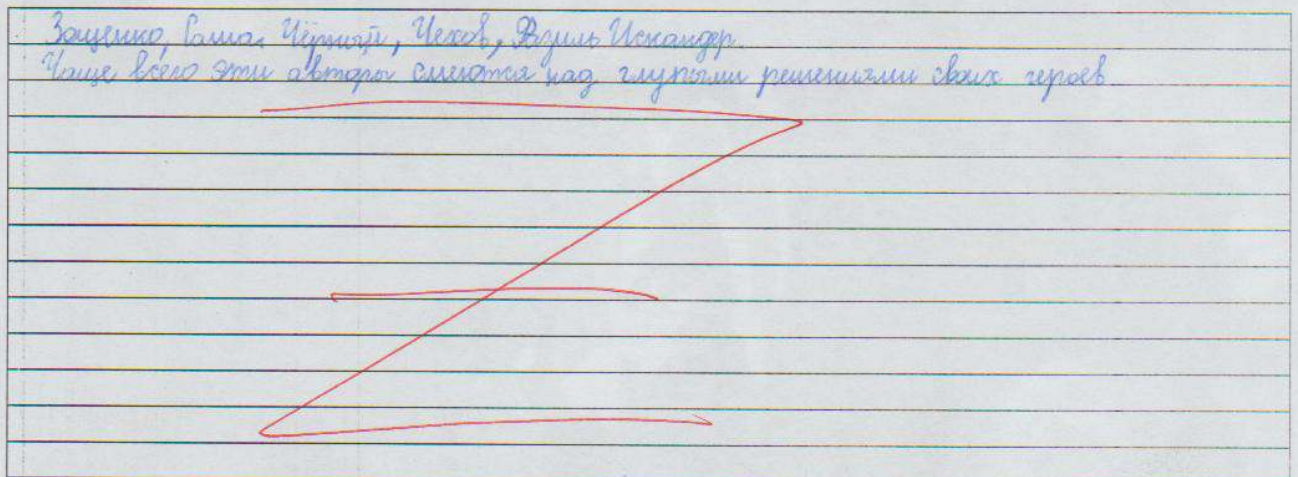 Зощенко, Саша Чёрный, Чехов, Фазиль Искандер.
Чаще всего эти авторы смеются над глупыми решениями своих героев